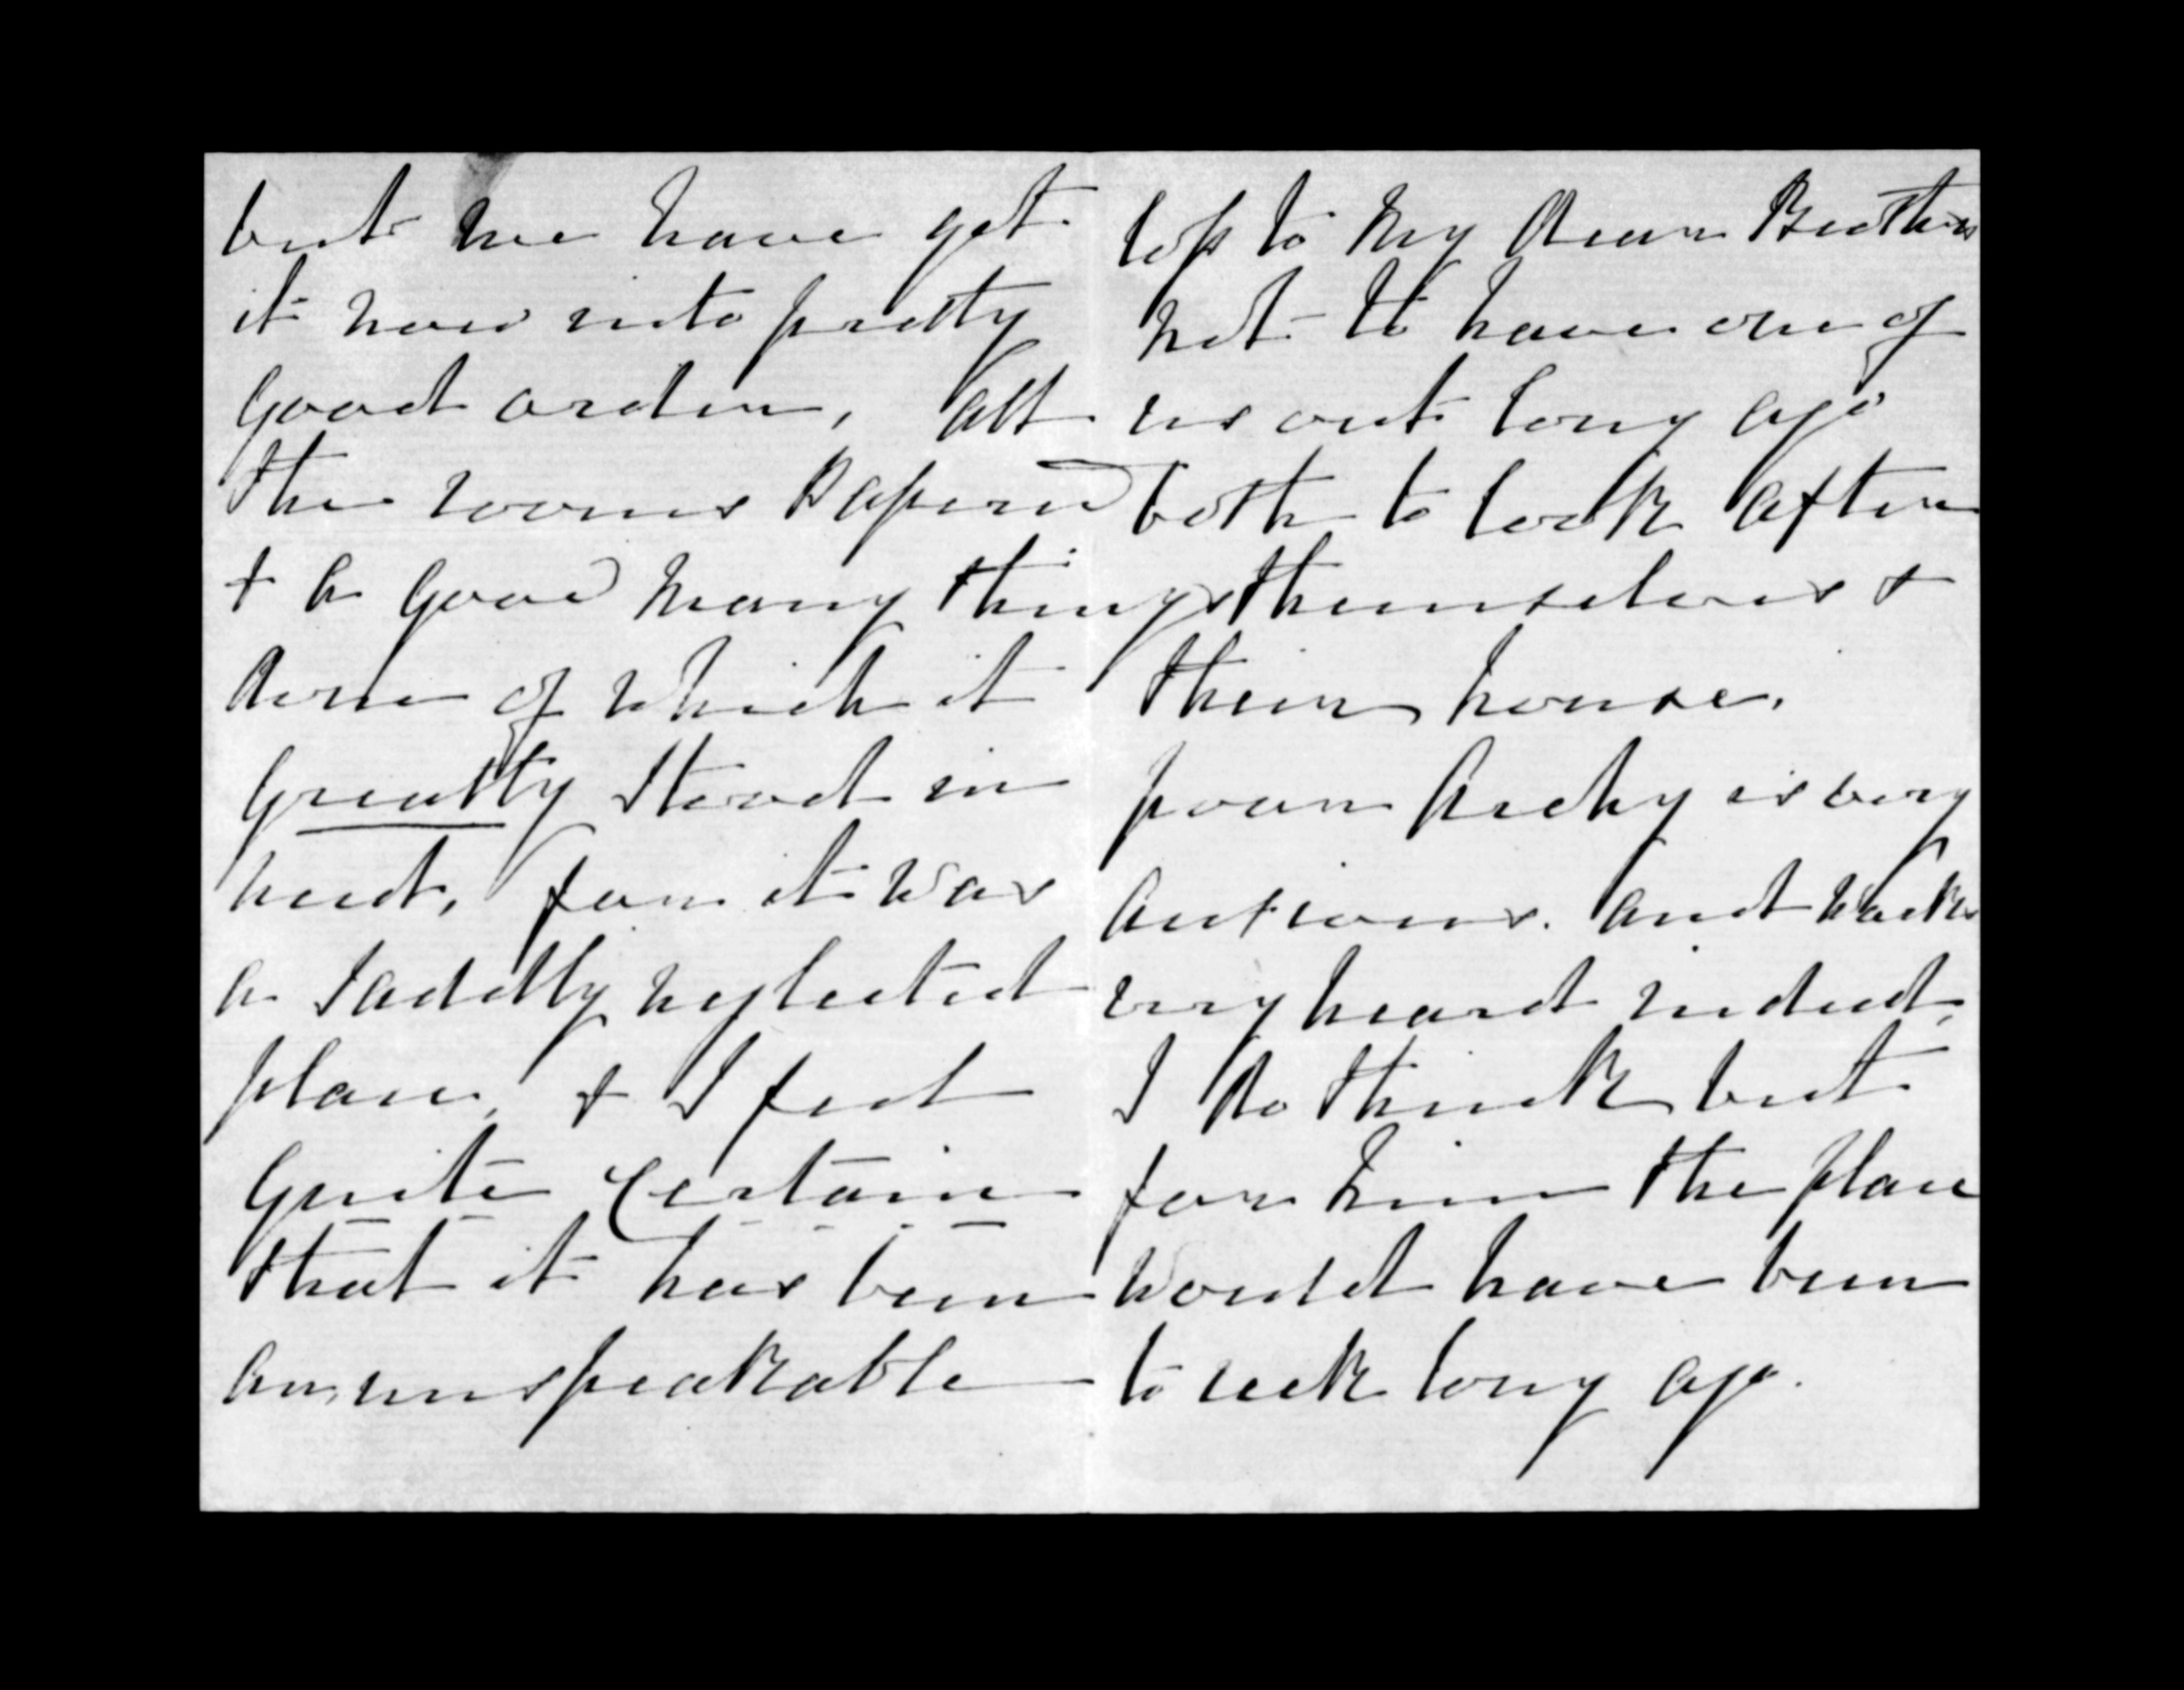 but we have got
it now into pretty
good order, all
the rooms papered
& a good many things
done of which it
greatly stood in
need, for it was
a sadly neglected
place, & I feel
quite certain
that it has been
an unspeakable
loss to my dear Brothers
not to have one of
us out long ago
both to look after
themselves &
their house.
poor Archy is very
anxious. and works
very heard indeed,
I do think but
for him the place
would have been
to seek long ago.